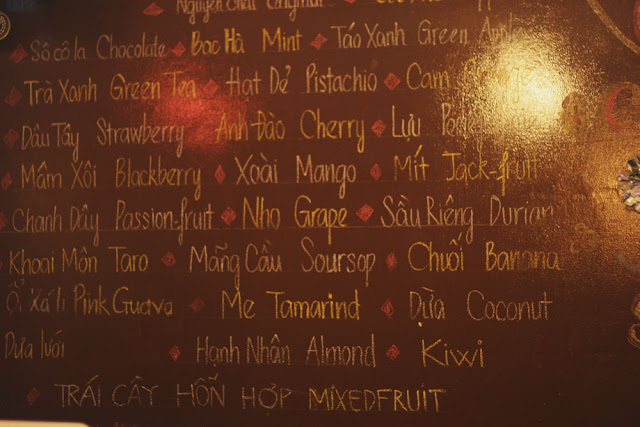 Nguyên Chất Original
Sôcôla Chocolate Bạc Hà Mint Táo Xanh Green Apple
Trà Xanh Green Tea Hạt Dẻ Pistachio Cam
Dâu Tây Strawberry Anh Đào Cherry Lựu
Mâm Xôi Blackberry Xoài Mango Mít Jack-fruit
Chanh Dây Passion-fruit Nho Grape Sầu Riêng Durian
Khoai Môn Taro Mãng Cầu Soursop Chuối Banana
Ổi Xá lị Pink Guava Me Tamarind Dừa Coconut
Dưa lưới Hạnh Nhân Almond Kiwi
TRÁI CÂY HỖN HỢP MIXEDFRUIT